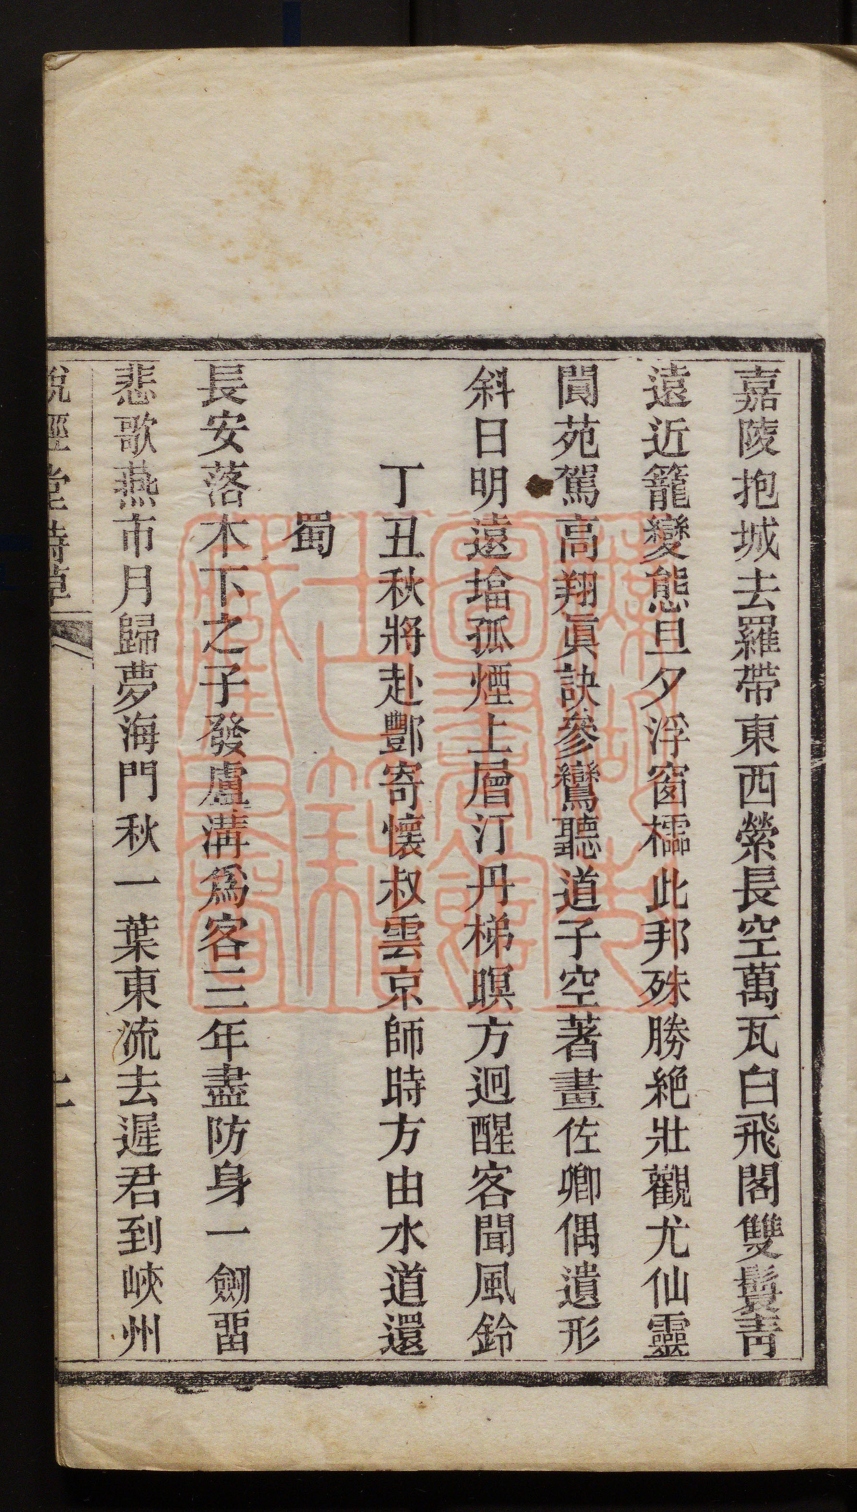 嘉陵抱城去羅帶東西縈長空萬瓦白飛閣雙鬟青
遠近籠變態旦夕浮窗櫺此邦殊勝絶壯觀尤仙靈
閬苑駕高翔眞訣參鸞聽道子空著畫佐卿偶遺形
斜日明遠墖孤煙上層汀丹梯暝方迥醒客聞風鈴
丁丑秋將赴酆寄懷叔雲京師時方由水道還
蜀
長安落木下之子發盧溝爲客三年盡防身一劒畱
悲歌燕市月歸夢海門秋一葉東流去遲君到峽州
悅經堂詩草